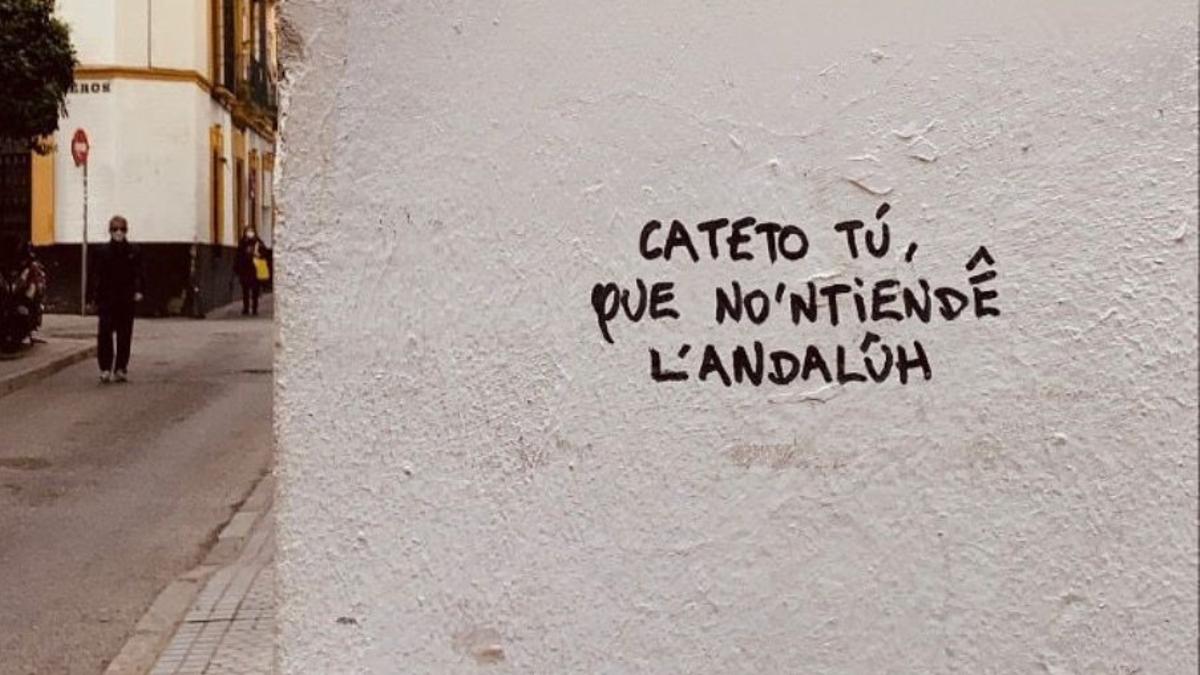 EROS
CATETO TÚ,
QUE NO'NTiENDÊ
L'ANDALÛH